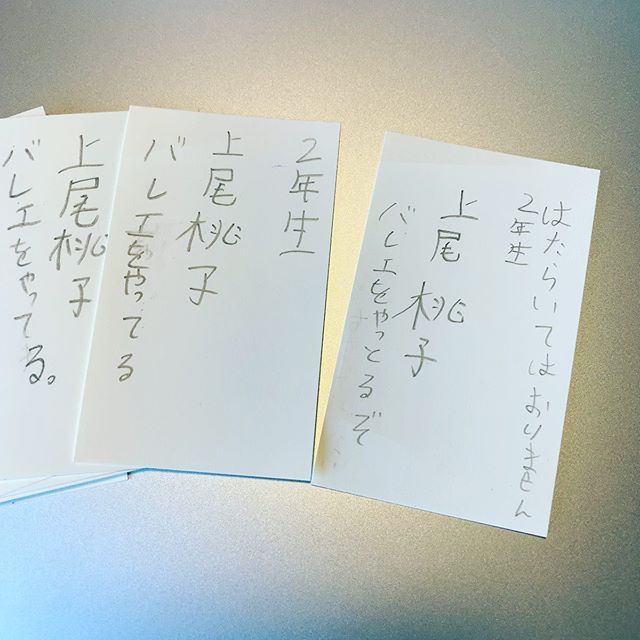 はたらいてはおりません
2年生
上尾桃子
バレエをやっとるぞ
2年生
上尾桃子
バレエをやってる
上尾桃子
バレエをやってる。